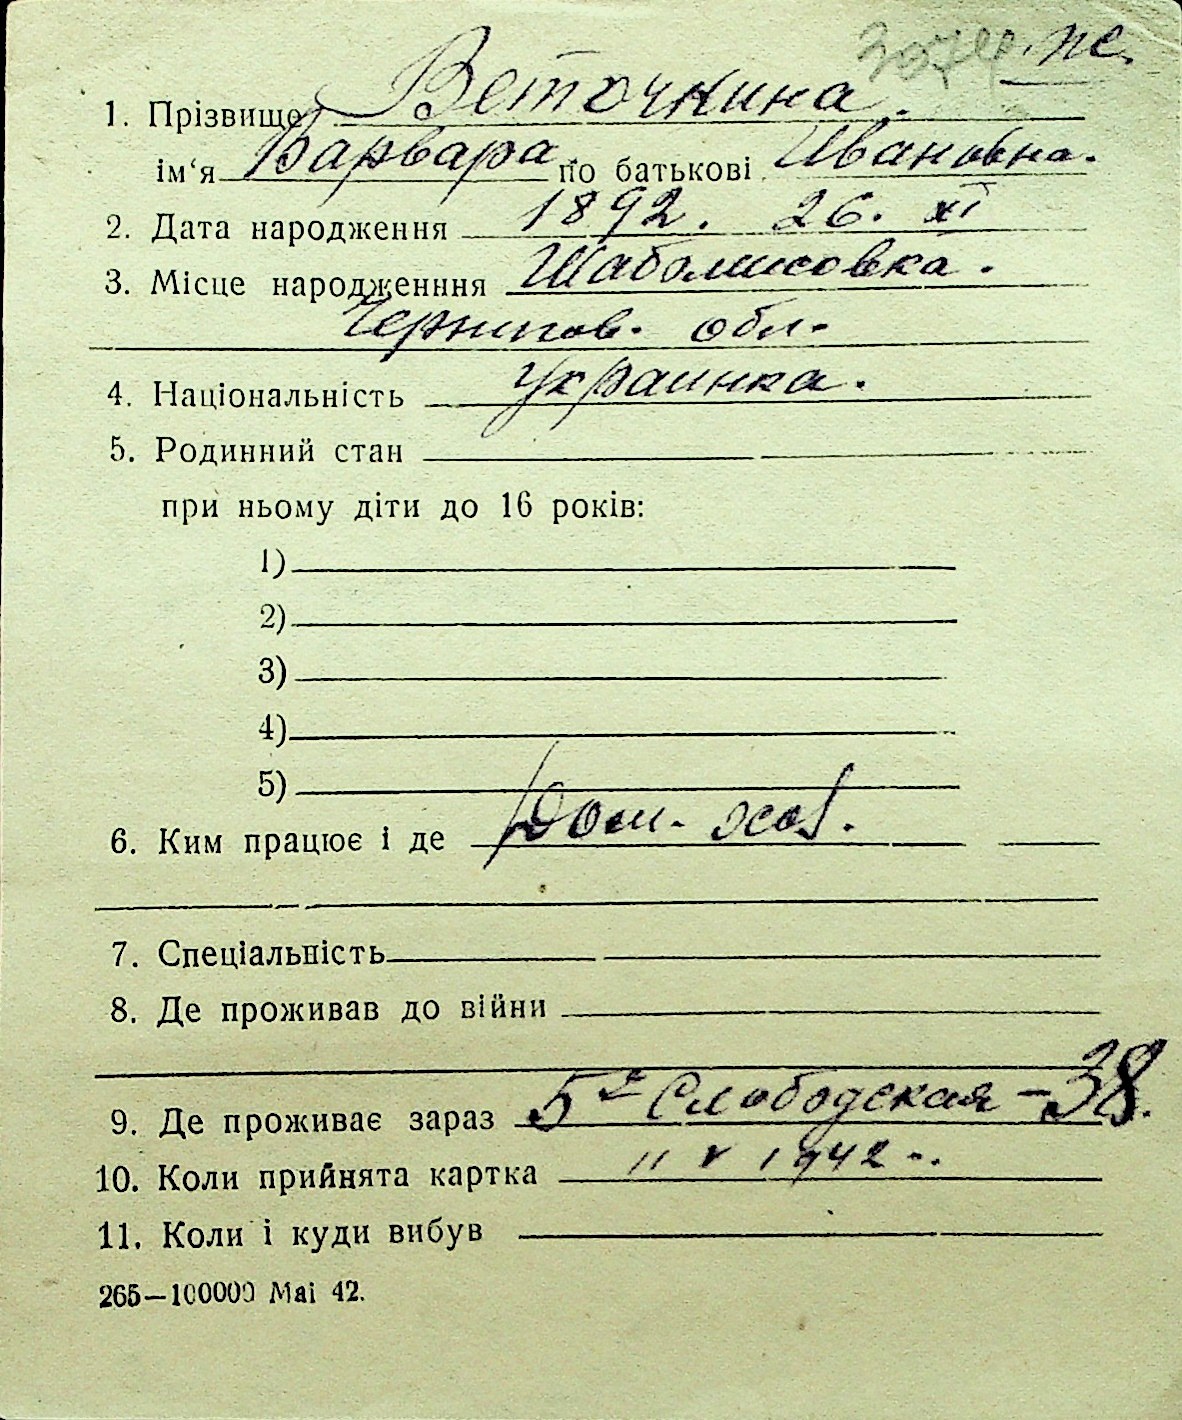 же.
1. Прізвище Веточкина.
ім'я Варвара по батькові Ивановна.
2. Дата народження 1892. 26. XI
3. Місце народженння Шаболиновка.
Чернигов. обл.
4. Національність украинка.
5. Родинний стан
при ньому діти до 16 років:
1)
2)
3)
4)
5)
6. Ким працює і де Дом. хоз.
7. Спеціальність
8. Де проживав до війни
9. Де проживає зараз 5я Слободская – 38.
10. Коли прийнята картка 11 V 1942.
11. Коли і куди вибув
265—100000 Маі 42.